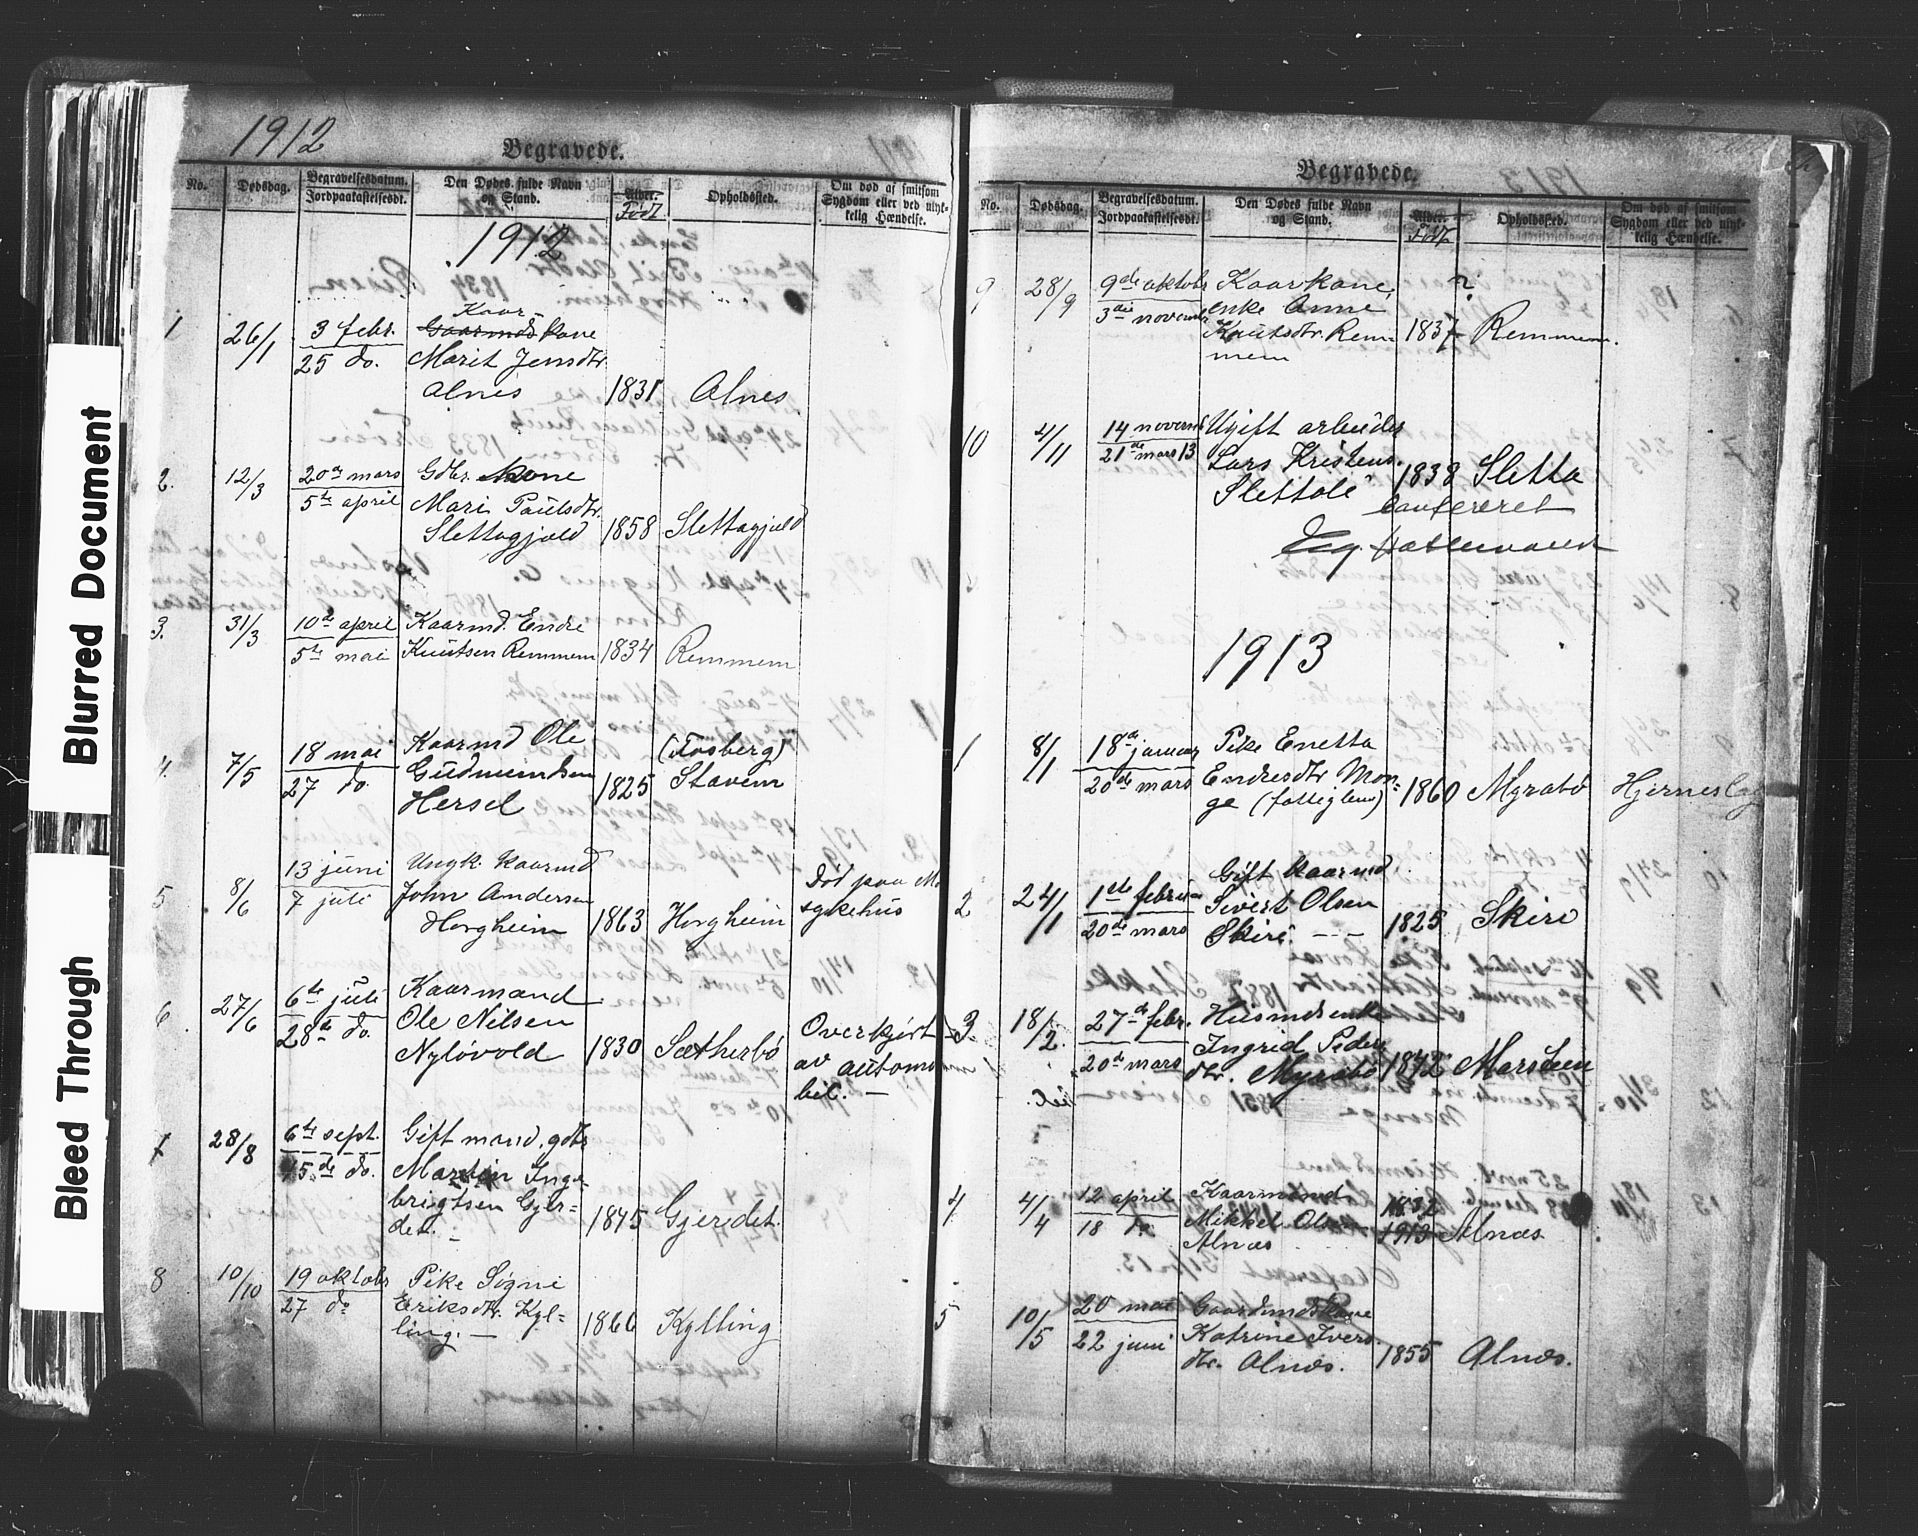 Blurred Document
Bleed Through
1912
Begravede.
No.
Dødsdag.
Begravelsesdatum.
Jordpaakastelsesdt.
Den Dødes fulde Navn
og Stand.
Alder.
Født
Opholdssted.
Om død af smitsom
Sygdom eller ved ulyk-
kelig Hændelse.
1912
1
26/1
3 febr.
25 do.
Kaar-
Gaarmdskone
Marit Jensdtr.
Alnes
1831
Alnes
2.
12/3
20de mars
5te april
Gdbr. kone
Mari Paulsdtr.
Slettagjæld
1858
Slettagjæld
3.
31/3
10de april
5te mai
Kaarmd. Endre
Knutsen Remmem
1834
Remmem
4.
7/5
18 mai
27 do.
Kaarmd Ole
Gudmundsen
Hersel
1825
(Fosberg)
Stavem
5
8/6
13 juni
7 juli
Ungk. kaarmd
John Andersen
Horgheim
1863
Horgheim
Død paa M.
sykehus
6
27/6
6te juli
28de do.
Kaarmand
Ole Nilsen
Nyløvold
1830
Sætherbø
Overkjørt
av automo
bil. —
7
28/8
6te sept.
15de do.
Gift mand, gdbr
Martin Inge-
brigtsen Gjer=
det. —
1845
Gjerdet.
8
10/10
19 oktobr
27 do
Pike Signe
Eriksdtr. Kyl=
ling. —
1866
Kylling
Begravede.
No.
Dødsdag.
Begravelsesdatum.
Jordpaakastelsesdt.
Den Dødes fulde Navn
og Stand.
Alder.
Født
Opholdssted.
Om død af smitsom
Sygdom eller ved ulyk-
kelig Hændelse.
9
28/9
9de oktobr
3die november
Kaarkone,
enke Anne
Knutsdtr. Rem-
mem
1837
Remmem.
10
4/11
14 novemb
21de mars 13
Ugift arbeider
Lars Kristens.
Slettole
1838
Sletta
Confereret
1913
1
8/1
18de januar
20de mars
Pike Enetta
Endresdtr Mon=
ge (fattiglem)
1860
Myrabø
Hjerneslag
2
24/1
1ste februar
20de mars
Gift kaarmd.
Sivert Olsen
Skiri. — —
1825
Skiri
3
18/2
27de febr.
20de mars
Husmdsenke
Ingrid Peders
dtr. Myrabø
1842
Marstein
4
4/4
12 april
18 do.
Kaarmand
Mikkel Olsen
Alnæs
1832
1913
Alnæs
5
10/5
20 mai
22 juni
Gaardmandskone
Katrine Ivers
dtr. Alnæs.
1855
Alnæs.